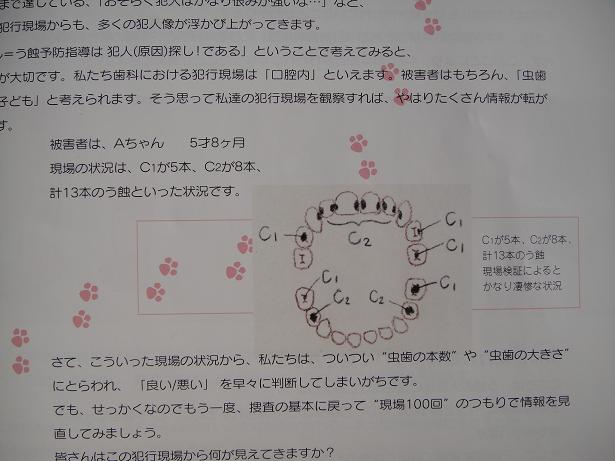 まで達している、「おそらく犯人はかなり恨みが強いな…」など、
犯行現場からも、多くの犯人像が浮かび上がってきます。
=う蝕予防指導は 犯人(原因)探し!である」ということで考えてみると、
が大切です。私たち歯科における犯行現場は「口腔内」といえます。被害者はもちろん、「虫歯
子ども」と考えられます。そう思って私達の犯行現場を観察すれば、やはりたくさん情報が転が
す。
被害者は、Aちゃん　5才8ヶ月
現場の状況は、C1が5本、C2が8本、
計13本のう蝕といった状況です。
C2
C1
C1
C1
C1
C1
C2
C2
C1が5本、C2が8本、
計13本のう蝕
現場検証によると
かなり凄惨な状況
さて、こういった現場の状況から、私たちは、ついつい “虫歯の本数” や “虫歯の大きさ”
にとらわれ、「良い/悪い」を早々に判断してしまいがちです。
でも、せっかくなのでもう一度、捜査の基本に戻って “現場100回” のつもりで情報を見
直してみましょう。
皆さんはこの犯行現場から何が見えてきますか？